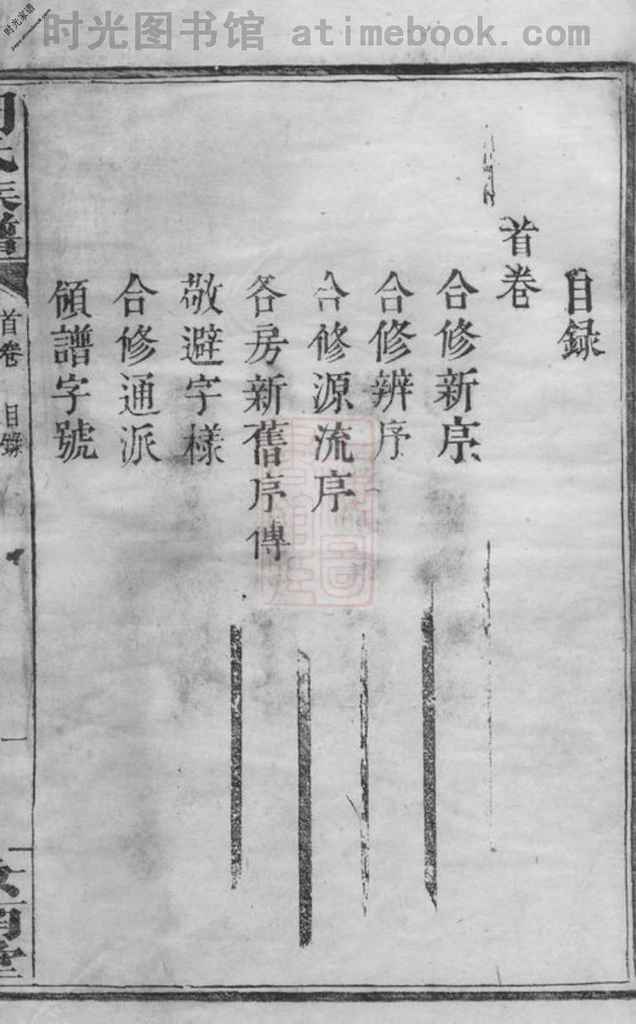 时光图书馆 atimebook.com
时光家谱
目録
首卷
合修新序
合修辨序
合修源流序
各房新舊序傳
敬避字様
合修通派
領譜字號
氏族譜
首卷 目録
一